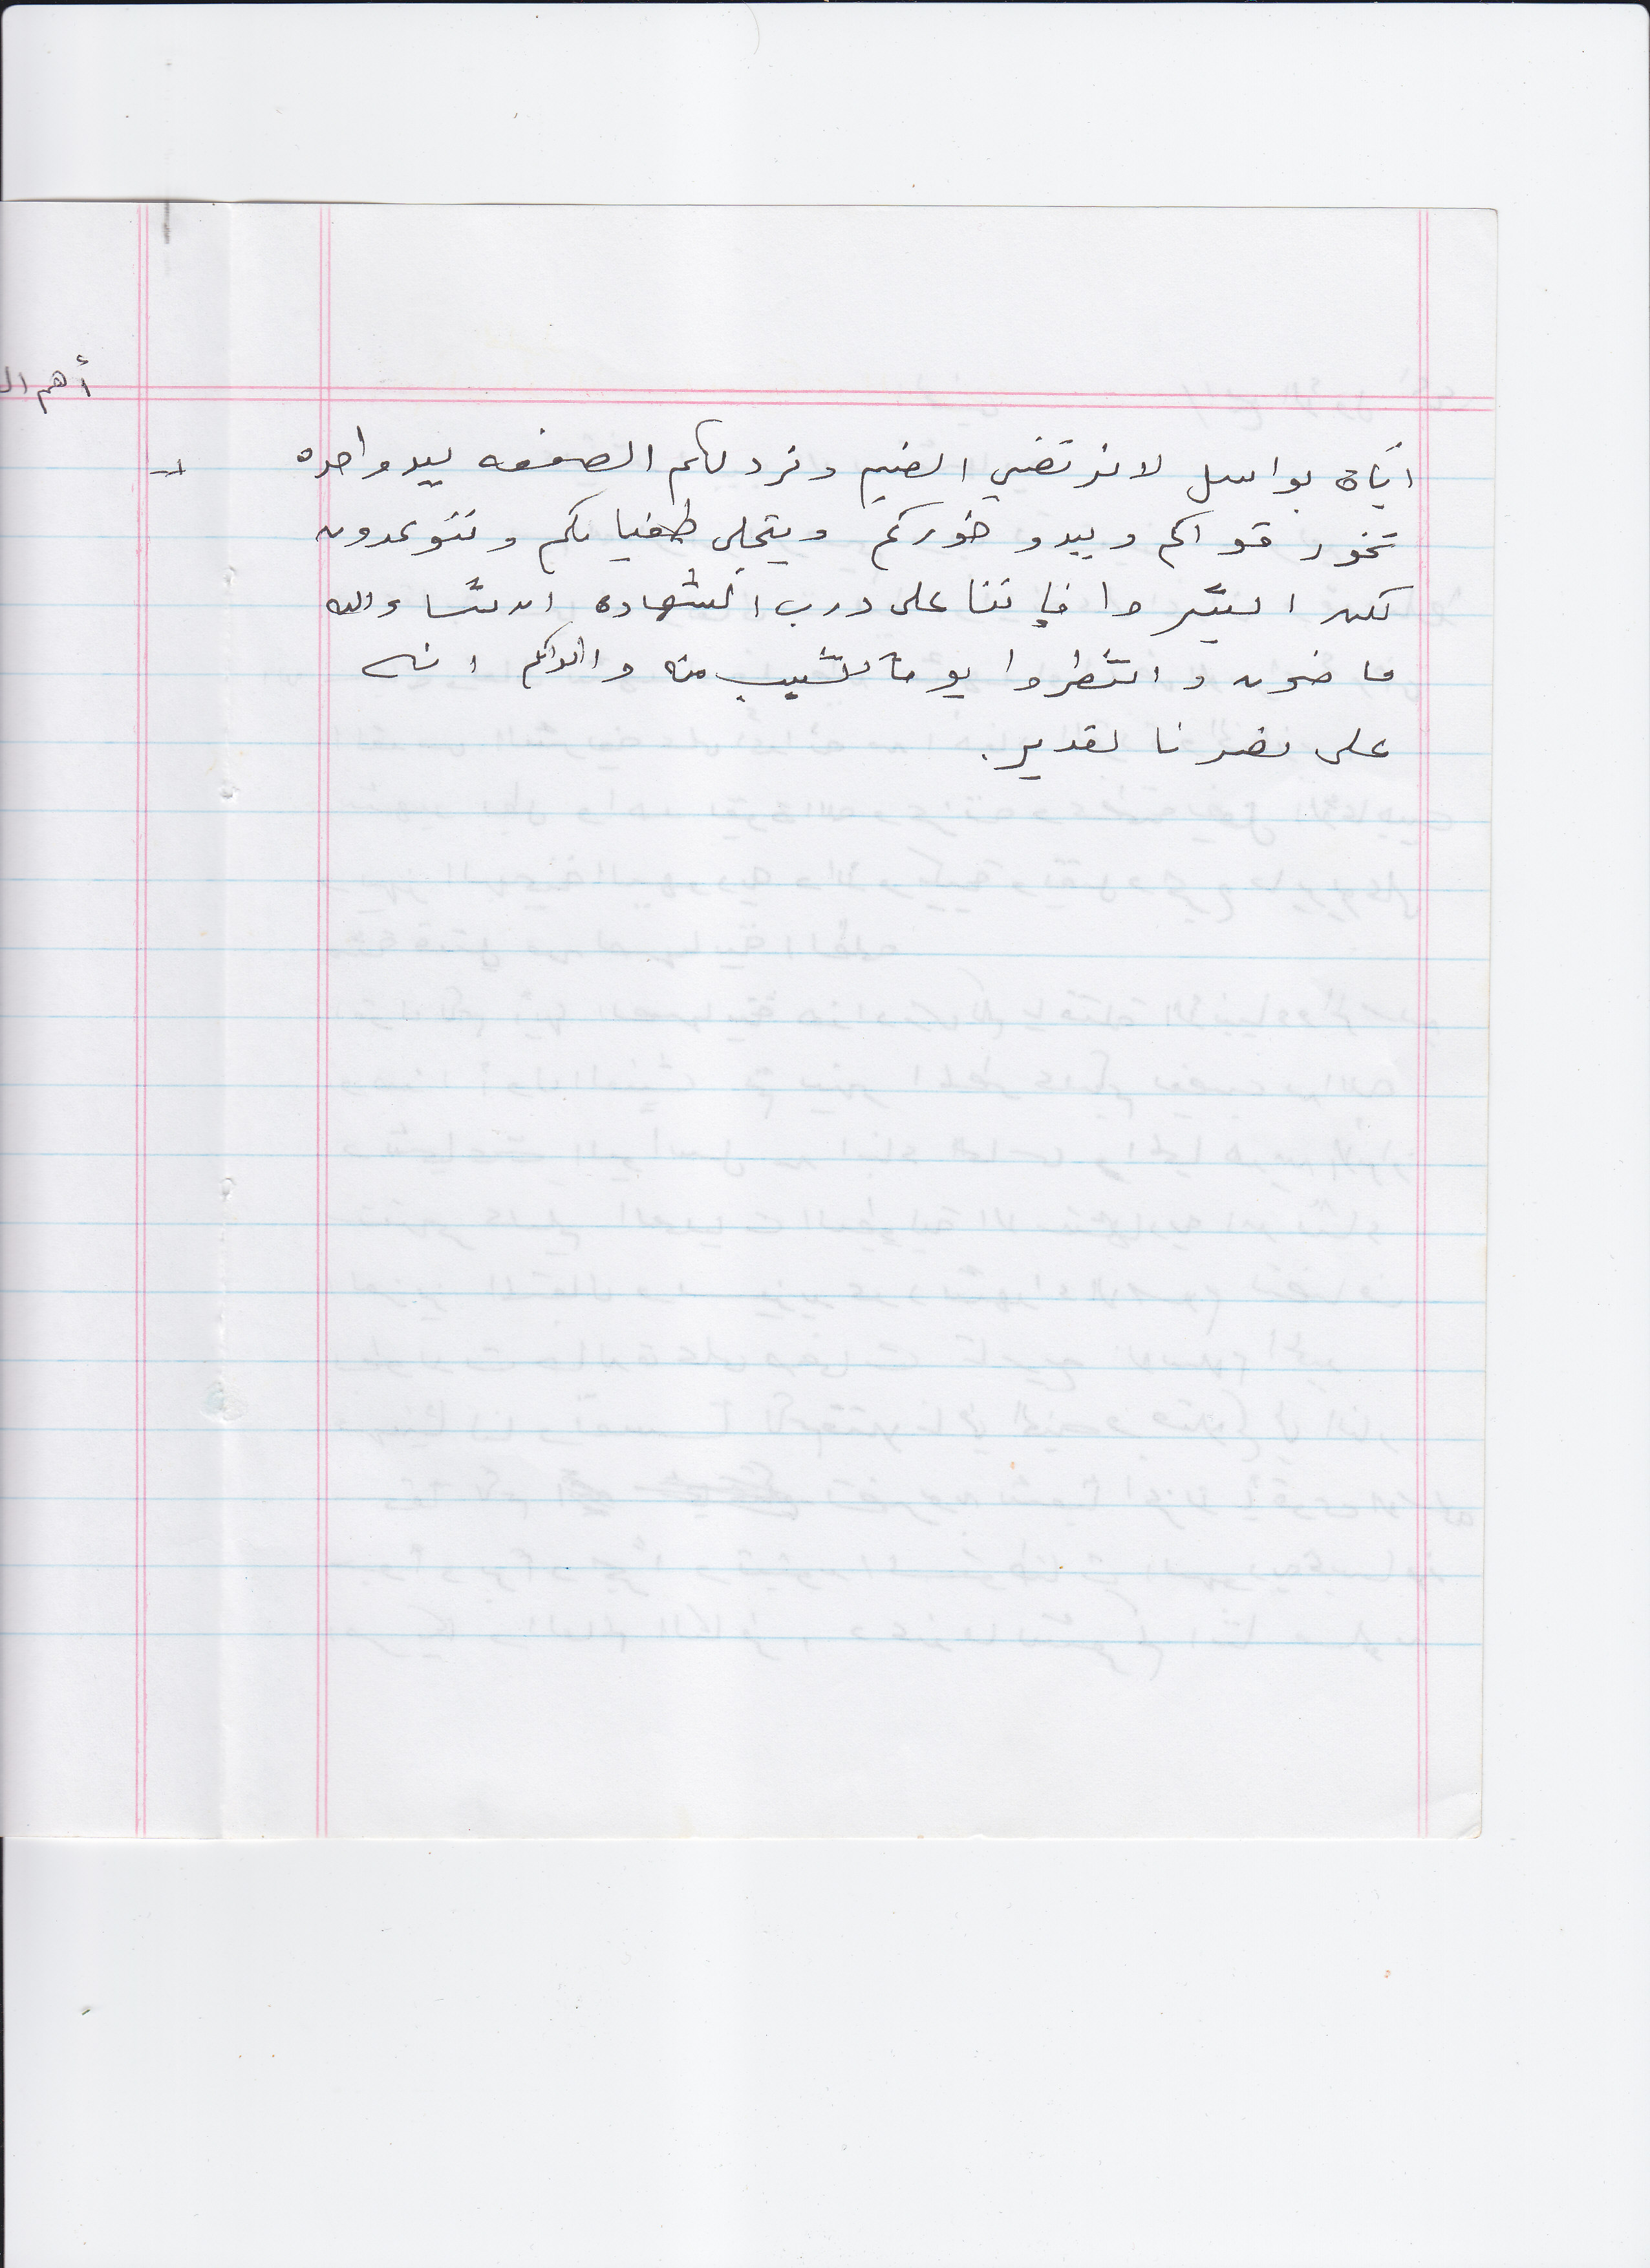 أهم ال
اباة بواسل لا نرتضي الضيم ونرد لهم الصفعه بيد واحده
تخور قواكم ويبدو خوركم ويتجلى طغيانكم وتتوعدون
لكن ابشروا فإننا على درب الشهاده ان شاء الله
ماضون وانتظروا يوماً تشيب منه انه
على نصرنا لقدير.